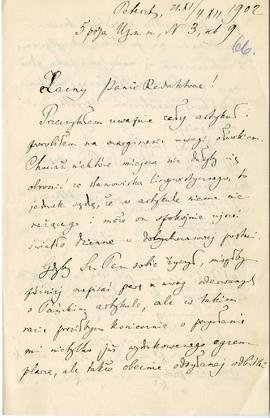 Petersb. 21.XI/4.XII 1902
N 3, 9
66.
Zacny Panie Redaktorze!
Przeczytałem uważnie cały artykuł i
porobiłem na marginesie uwagi ołówkiem.
Chociaż niektóre miejsca nie dałyby się
obronić ze stanowiska lingwistycznego, to
jednak sądzę, że w artykule niema nic
rażącego i może on spokojnie ujrzeć
światło dzienne w dotychczasowej postaci.
Gdyby Sz. Pan sobie życzył, mógłbym
później napisać parę uwag oderwanych
o Pańskim artykule, ale w takim
razie prosiłbym koniecznie o przysłanie
mi nietylko już wydrukowanego egzem-
plarza, ale także obecnie odsyłanej odbitki